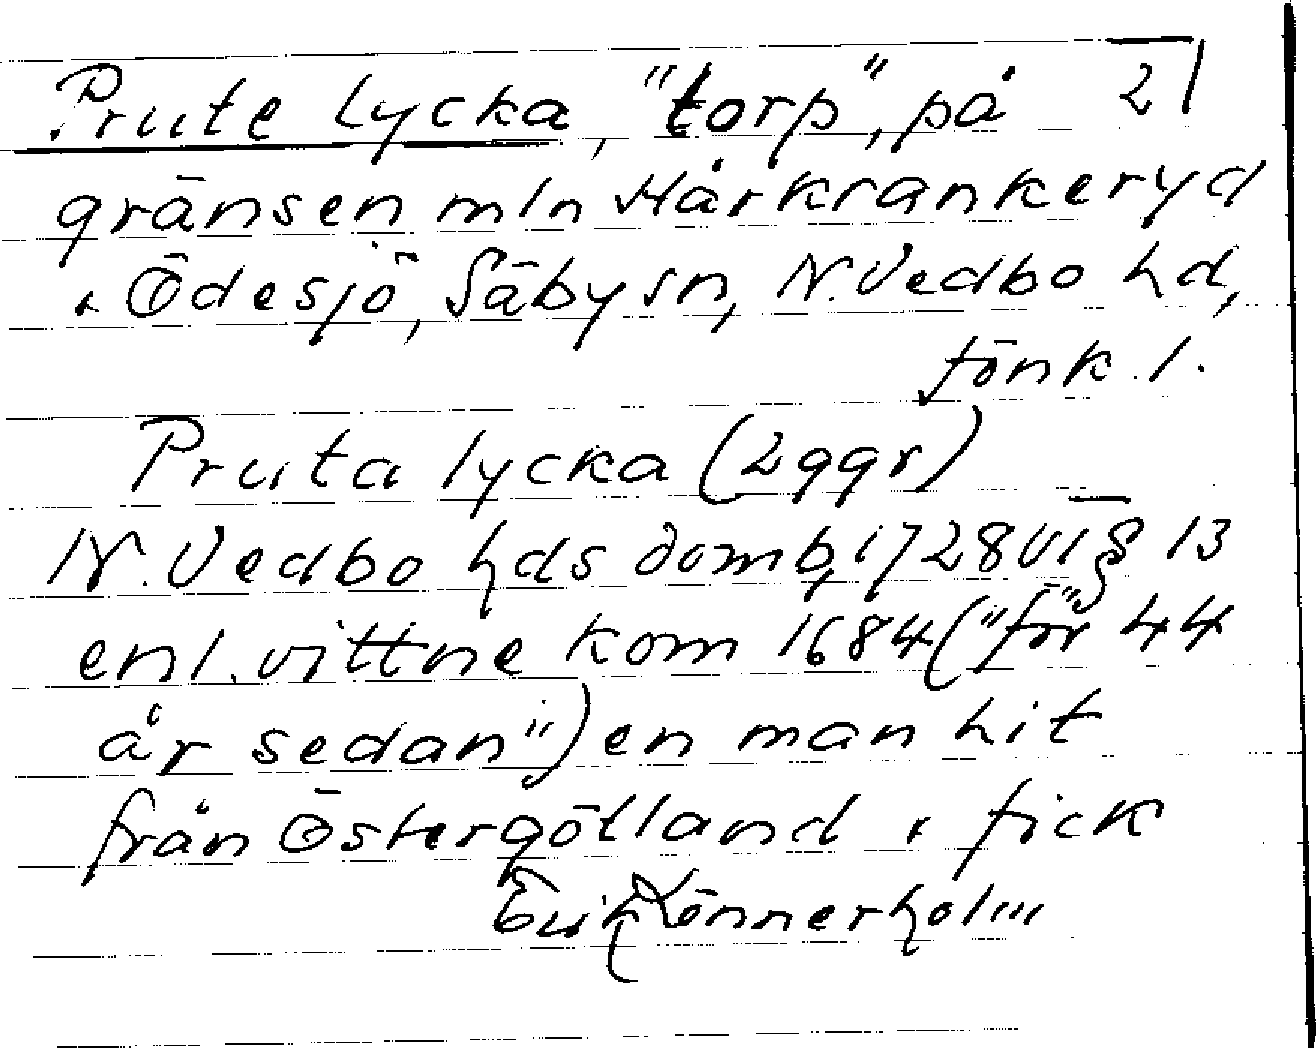 Prute lycka, "torp", på 21
gränsen mln Hårkrankeryd
& Ödesjö, Säby sn, N. Vedbo hd,
Jönk. l.
Pruta lycka (2 ggr)
N. Vedbo hds domb, 1728 VI § 13
enl. vittne kom 1684 ("för 44
år sedan") en man hit
från Östergötland & fick
Erik Lönnerholm